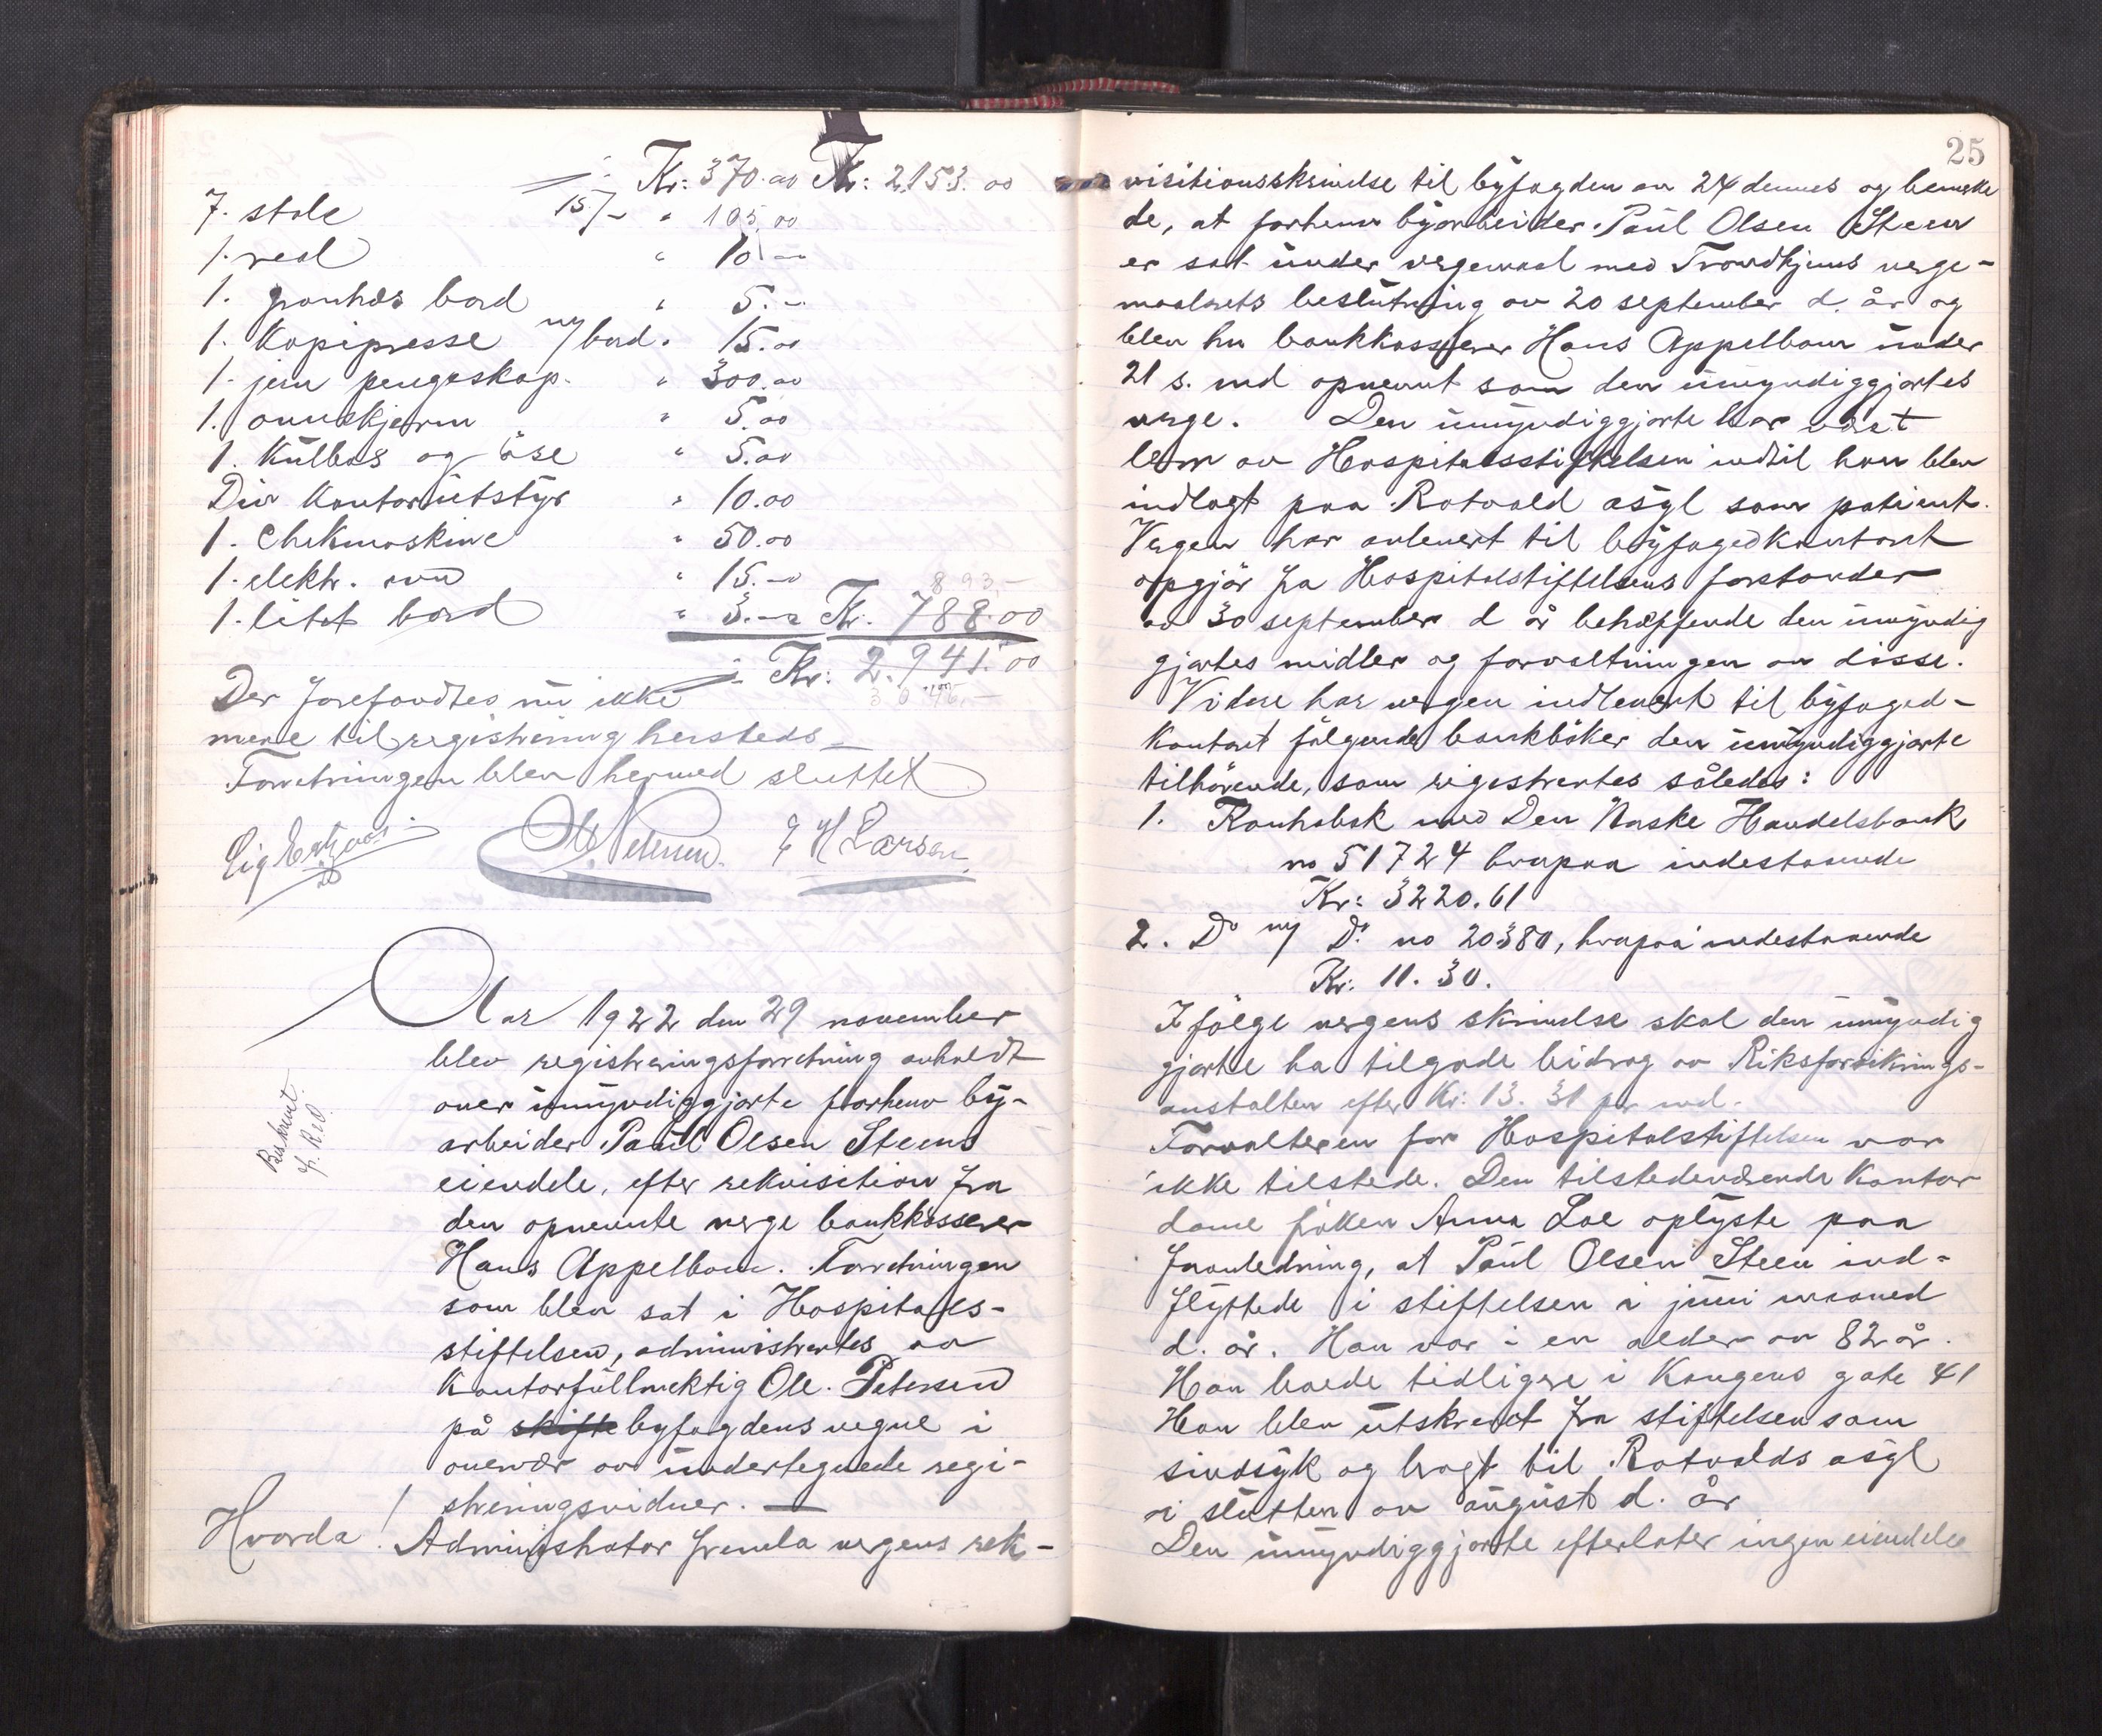 Kr: 370.00 Kr: 2153.00
7. stole 15/- " 105.00
1. reol " 10.-
1. bord " 5.-
1. Kopipresse m/ bord " 15.00
1. jern pengeskap. " 300.00
1. ovnskjerm " 5.00
1. Kulboks og öse " 5.00
Div Kontorutstyr " 10.00
1. Chekmaskine " 50.00
1. elektr. ovn " 15.-
893.-
1. litet bord " 3.- Kr. 788.00
Kr: 2.941.00
3046.-
Der forefandtes nu ikke
mere til registrering hersteds
Forretningen blev hermed sluttet
Ole Petersen. E H Larsen
Aar 1922 den 29 november
blev registreringsforretning avholdt
over umyndiggjorte forhenv by-
arbeider Paul Olsen Steens
eiendele, efter rekvisition fra
den opnevnte verge bankkasserer
Hans Appelbom. Forretningen
som blev sat i Hospitals-
stiftelsen, administrertes av
Kontorfullmektig Ole Petersen
på skifte byfogdens vegne i
overvær av undertegnede regi-
streringsvidner. —
Beskrevet
f. R.d.
Hvorda!
Administrator fremla vergens rek-
25
visitionsskrivelse til byfogden av 24 dennes og bemerke
de, at forhenv byarbeider Paul Olsen Steen
er sat under vergemaal med Trondhjems verge-
maalsrets beslutning av 20 september d. år og
blev hr bankkasserer Hans Appelbom under
21 s. md opnevnt som den umyndiggjortes
verge. Den umyndiggjorte har vært
lem av Hospitalsstiftelsen indtil han blev
indlagt paa Rotvold asyl som patient.
Vergen har avlevert til byfogedkontoret
opgjör fra Hospitalstiftelsens forstander
av 30 september d år behæftende den umyndig
gjortes midler og forvaltningen av disse.
Videre har vergen indlevert til byfoged-
kontoret følgende bankböker den umyndiggjorte
tilhörende, som registrertes således:
1. Kontrabok med Den Norske Handelsbank
no 51724 hvorpaa indestaaende
Kr: 3220.61
2. Do m/ Do no 20380, hvorpaa indestaaende
Kr: 11.30.
Ifölge vergens skrivelse skal den umyndig
gjorte ha tilgode bidrag av Riksforsikrings-
anstalten efter Kr: 13.31 pr md.
Forvalteren for Hospitalstiftelsen var
ikke tilstede. Den tilstedeværende Kontor
dame fröken Anna Loe oplyste paa
foranledning, at Paul Olsen Steen ind-
flyttede i stiftelsen i juni maaned
d. år. Han var i en alder av 82 år.
Han boede tidligere i Kongens gate 41
Han blev utskrevet fra stiftelsen som
sindsyk og bragt til Rotvolds asyl
i slutten av august d. år
Den umyndiggjorte efterlater ingen eiendele